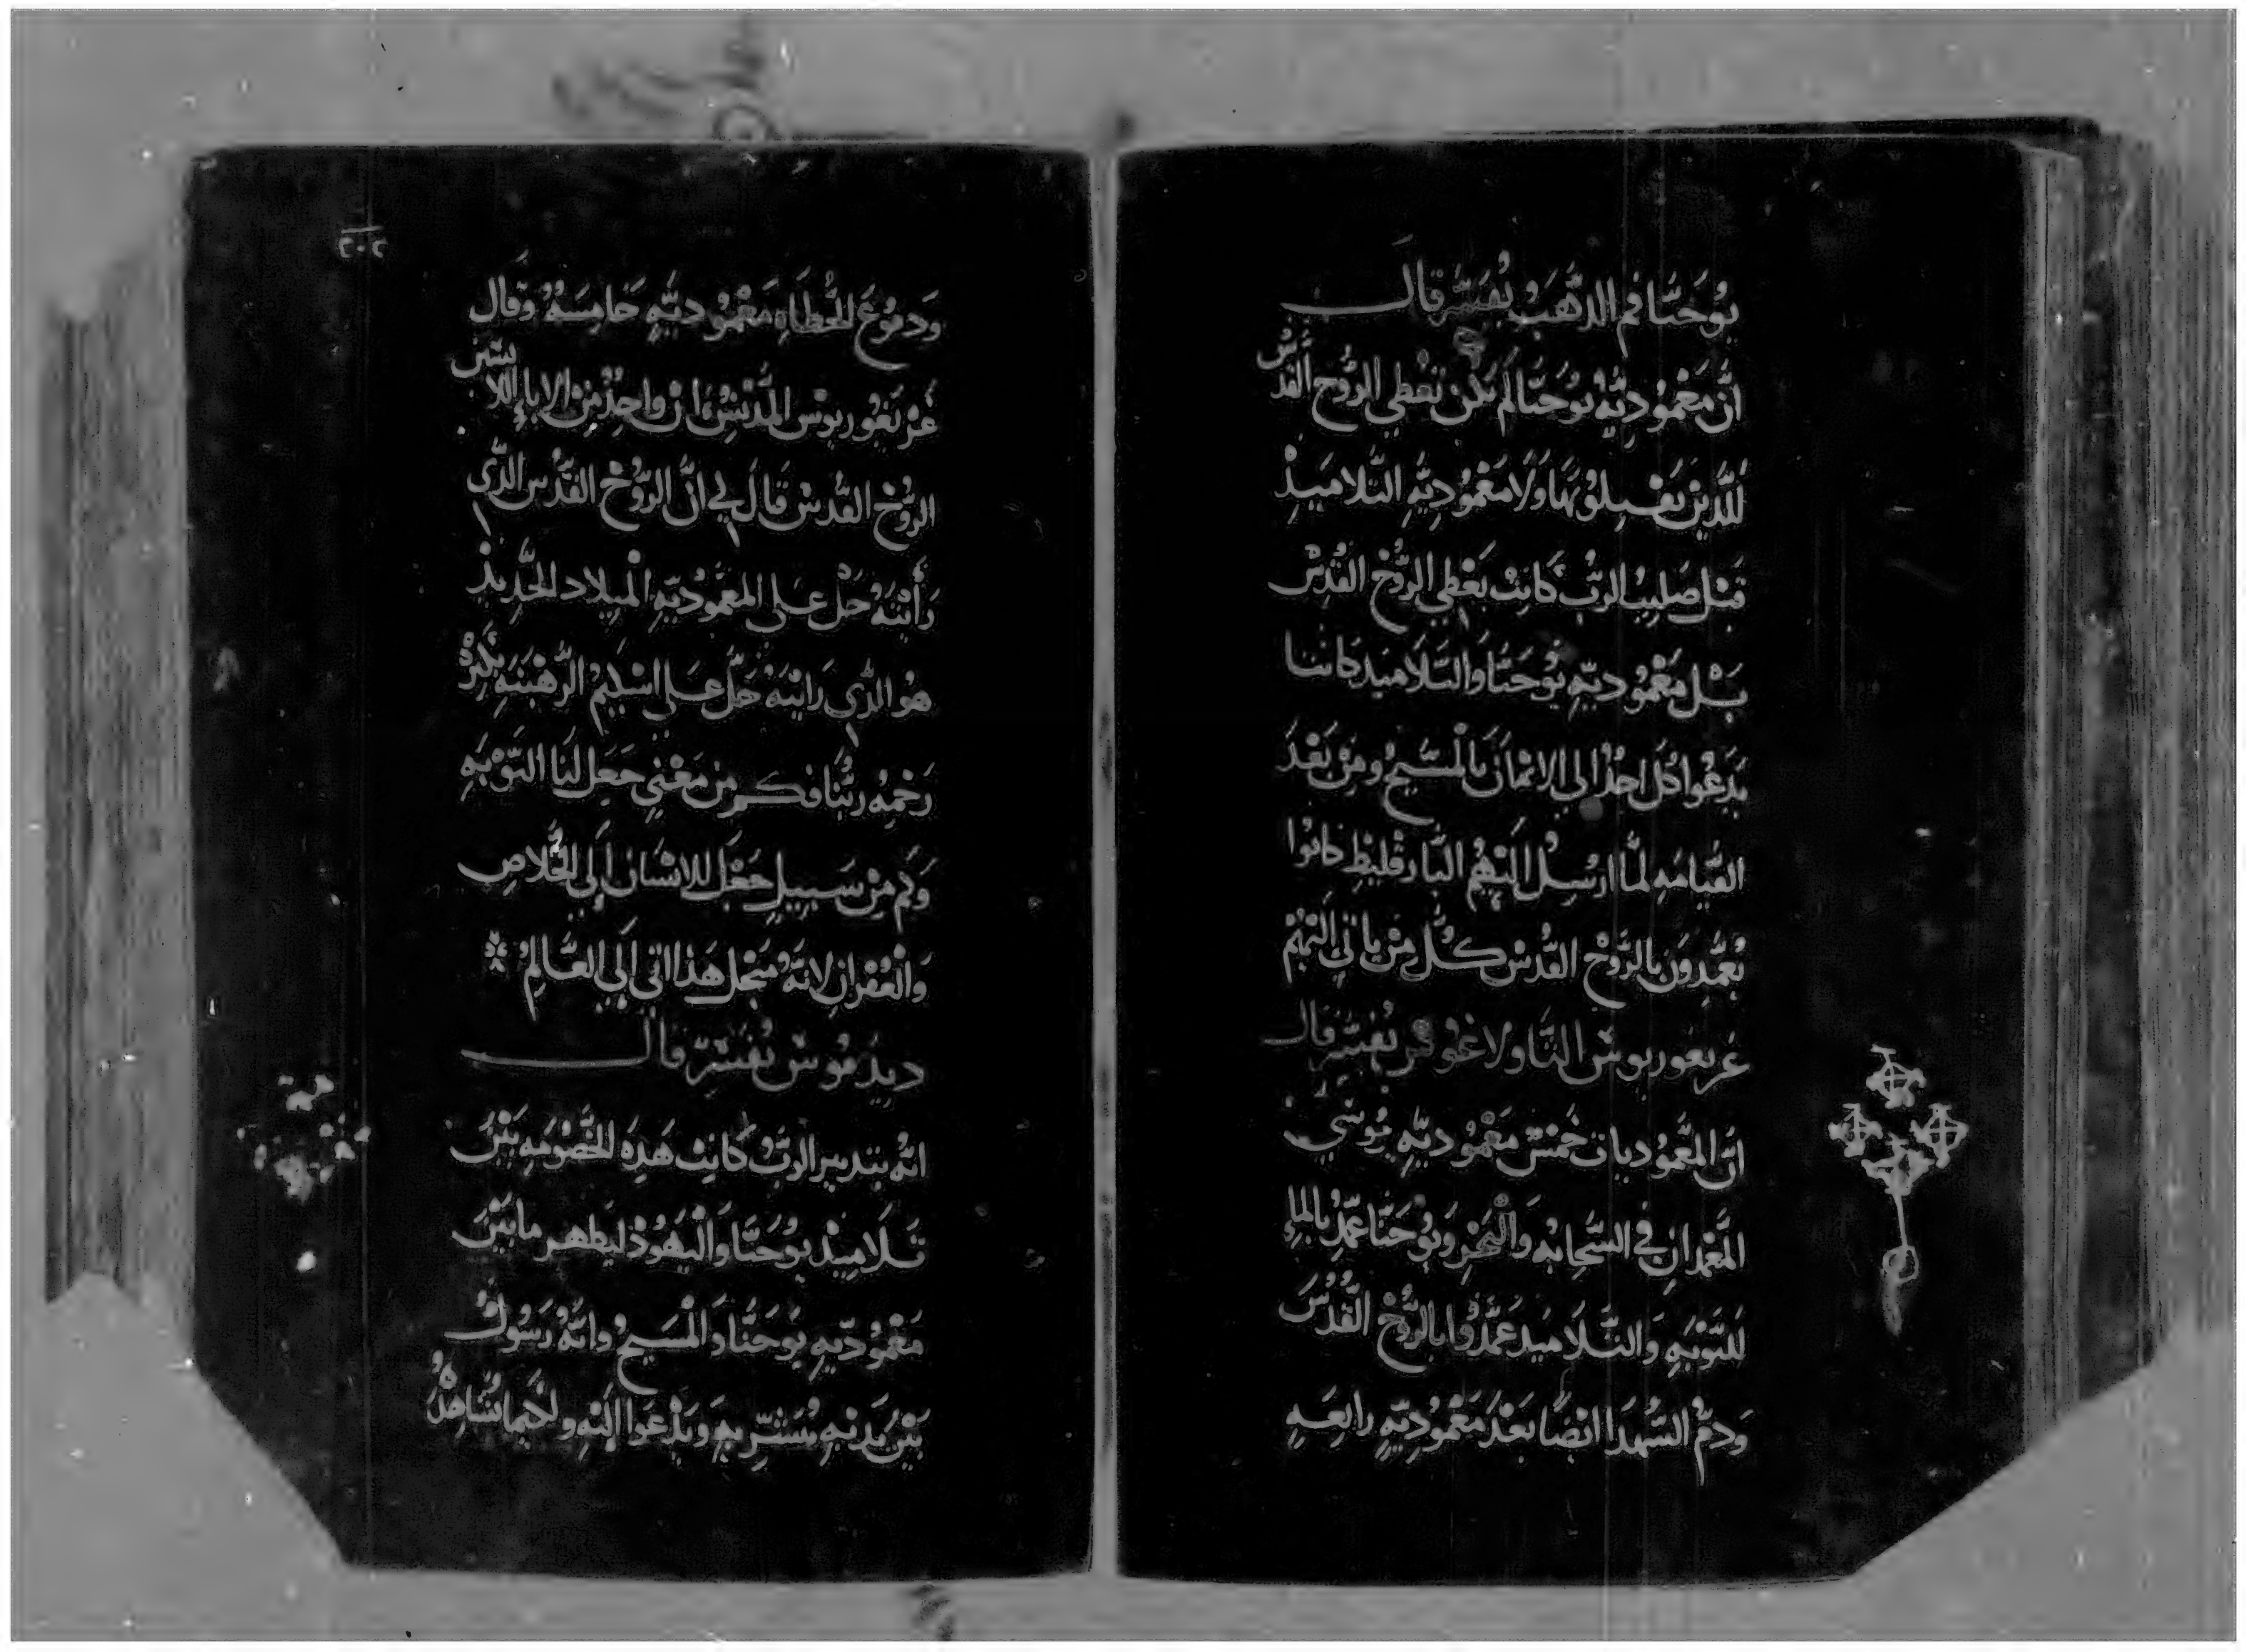 يوحنا فم الذهب يفسر قال
ان معموديه يوحنا لم تكن تعطي الروح القدس
للذين يقبلونها ولا معموديه التلاميذ
قبل صليب الرب كانت تعطي الروح القدس
بل معموديه يوحنا والتلاميذ كانتا
يدعوا كل احد الي الايمان بالمسيح ومن بعد
القيامه لما ارسل اليهم البارقليط كانوا
يعمدون بالروح القدس كل من ياتي اليهم
غريغوريوس الثاولاغوس يفسر قال
ان المعموديات خمس معموديه موسي
المعمدان في السحابه والبحر ويوحنا عمد بالماء
للتوبه والتلاميذ عمدوا بالروح القدس
ودم الشهدا ايضا بعد معموديه رابعه
٢٠٢
ودموع الخطاه معموديه خامسه وقال
غريغوريوس ان واحد من الاباء اللابسين
الروح القدس قال لي ان الروح القدس الذي
رأيته حل علي المعموديه الميلاد الجديد
هو الذي رايته حل علي اسكيم الرهبنه
رحمه ربنا فكم من معني جعل لنا التوبه
وكم من سبيل جعل للانسان الي الخلاص
والغفران لانه مجل هذا اتي الي العالم
ديديموس يفسر قال
انه بتدبير الرب كانت هذه الخصومه بين
تلاميذ يوحنا واليهوذ ليظهر ما بين
معموديه يوحنا والمسيح وانه رسول
بين يديه يبشر به ويدعوا اليه ولكيما يشاهد